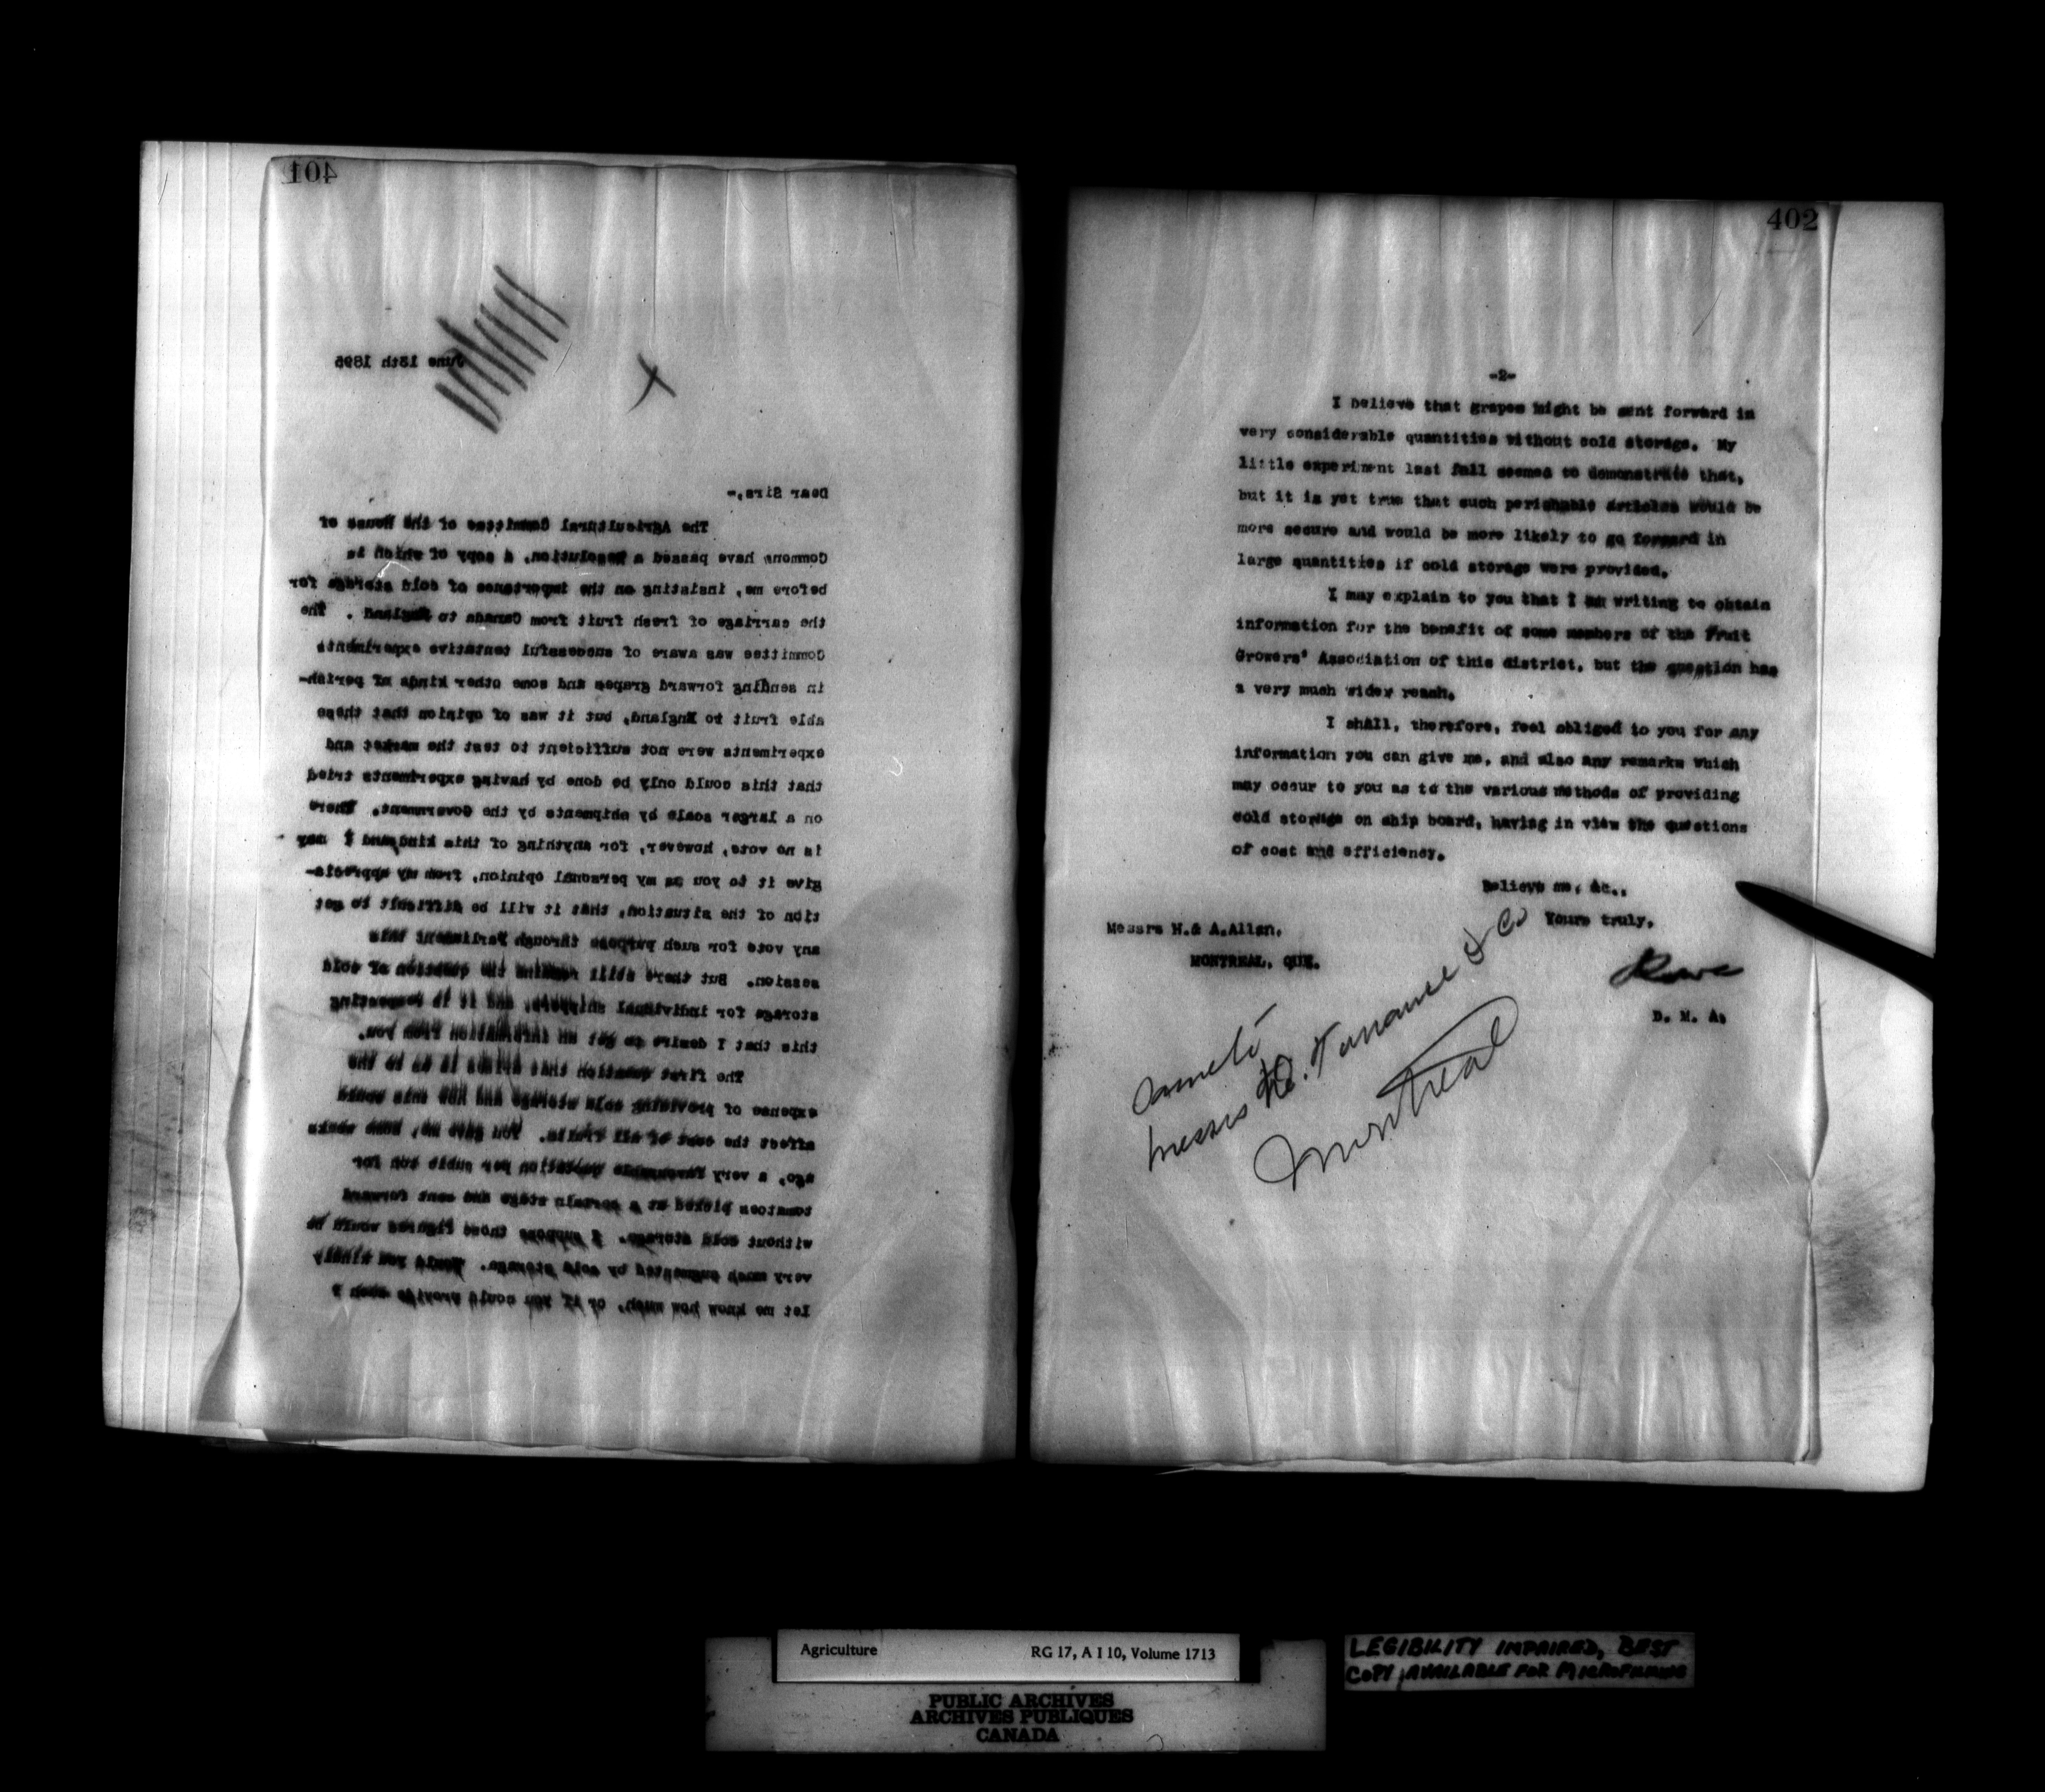 401
June 13th 1895
Dear Sirs,-
The Agricultural Committee of the House of
Commons have passed a Resolution, a copy of which is
before me, insisting on the importance of cold storage for
the carriage of fresh fruit from Canada to England. The
Committee was aware of successful tentative experiments
in sending forward grapes and some other kinds of perish-
able fruit to England, but it was of opinion that these
experiments were not sufficient to test the market and
that this could only be done by having experiments tried
on a larger scale by shipments by the Government. There
is no vote, however, for anything of this kind, and I may
give it to you as my personal opinion, from my apprecia-
tion of the situation, that it will be difficult to get
any vote for such purpose through Parliament this
session. But there still remains the question of cold
storage for individual shippers, and it is respecting
this that I desire to get an information from you.
The first question that arises is as to the
expense of providing cold storage and how this would
affect the cost of all fruits. You gave me, some weeks
ago, a very favourable quotation per cubic ton for
tomatoes picked at a certain stage and sent forward
without cold storage. I suppose those figures would be
very much augmented by cold storage. Would you kindly
let me know how much, or if you could provide such a
402
-2-
I believe that grapes might be sent forward in
very considerable quantities without cold storage. My
little experiment last fall seemed to demonstrate that,
but it is yet true that such perishable articles would be
more secure and would be more likely to go forward in
large quantities if cold storage were provided.
I may explain to you that I am writing to obtain
information for the benefit of some members of the Fruit
Growers' Association of this district, but the question has
a very much wider reach.
I shall, therefore, feel obliged to you for any
information you can give me, and also any remarks which
may occur to you as to the various methods of providing
cold storage on ship board, having in view the questions
of cost and efficiency.
Believe me, &c.,
Yours truly,
Messrs H.& A.Allan,
MONTREAL, QUE.
D. M. A.
Messrs D. Torrance & Co
Montreal
Agriculture RG 17, A I 10, Volume 1713
PUBLIC ARCHIVES
ARCHIVES PUBLIQUES
CANADA
LEGIBILITY IMPAIRED, BEST
COPY AVAILABLE FOR MICROFILMING